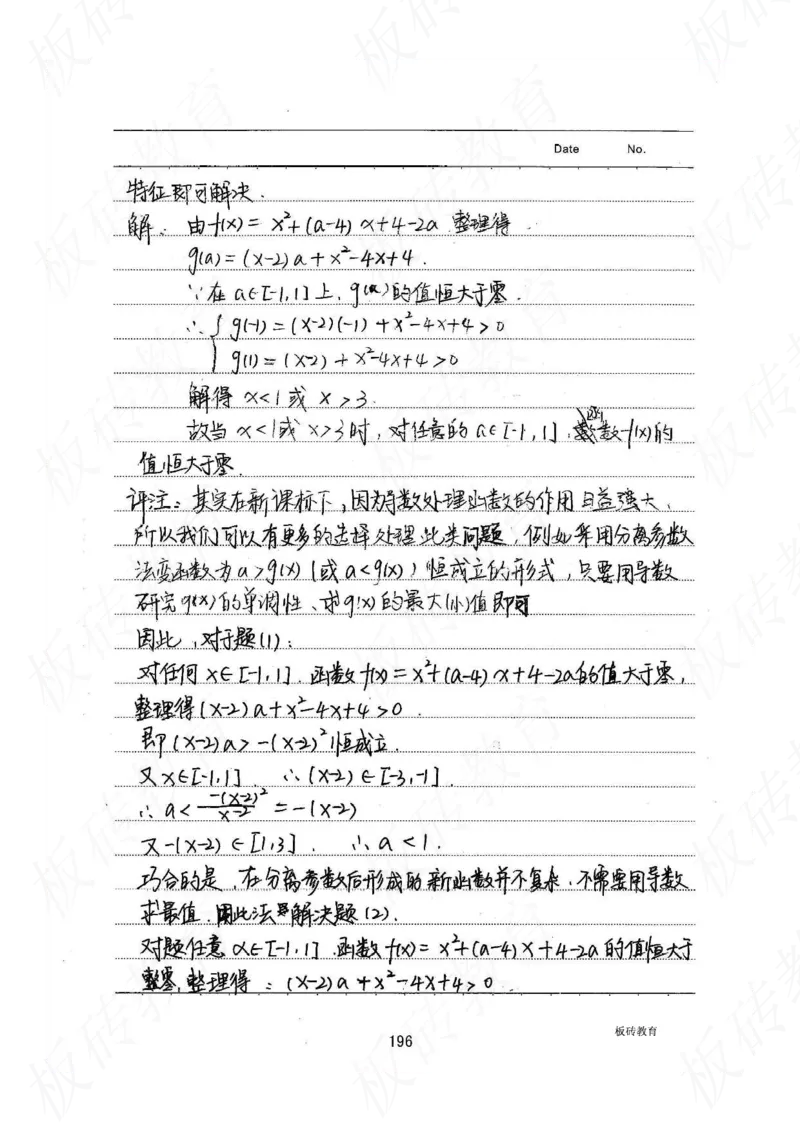 Date No.
特征即可解决.
解: 由f(x)= x²+(a-4)x+4-2a 整理得
g(a)=(x-2)a+x²-4x+4.
∵在a∈[-1,1]上, g(a)的值恒大于零.
∴ { g(-1)=(x-2)(-1)+x²-4x+4>0
g(1)=(x-2)+x²-4x+4>0
解得 x<1或 x>3.
故当 x<1或 x>3时, 对任意的 a∈[-1,1], 函数f(x)的
值恒大于零.
评注: 其实在新课标下, 因为导数处理函数的作用日益强大,
所以我们可以有更多的选择处理此类问题, 例如采用分离参数
法变函数为a>g(x) (或a<g(x)) 恒成立的形式, 只要用导数
研究g(x)的单调性、求g(x)的最大(小)值即可
因此, 对于题(1):
对任何 x∈[-1,1]. 函数f(x)=x²+(a-4)x+4-2a的值大于零,
整理得(x-2)a+x²-4x+4>0.
即(x-2)a>-(x-2)²恒成立.
又x∈[-1,1]. ∴(x-2)∈[-3,-1].
∴ a< -(x-2)²/(x-2) =-(x-2)
又-(x-2)∈[1,3]. ∴ a<1.
巧合的是, 在分离参数后形成的新函数并不复杂, 不需要用导数
求最值. 用此法解决题(2).
对题任意 a∈[-1,1] 函数f(x)= x²+(a-4)x+4-2a的值恒大于
零, 整理得: (x-2)a+x²-4x+4>0.
196
板砖教育